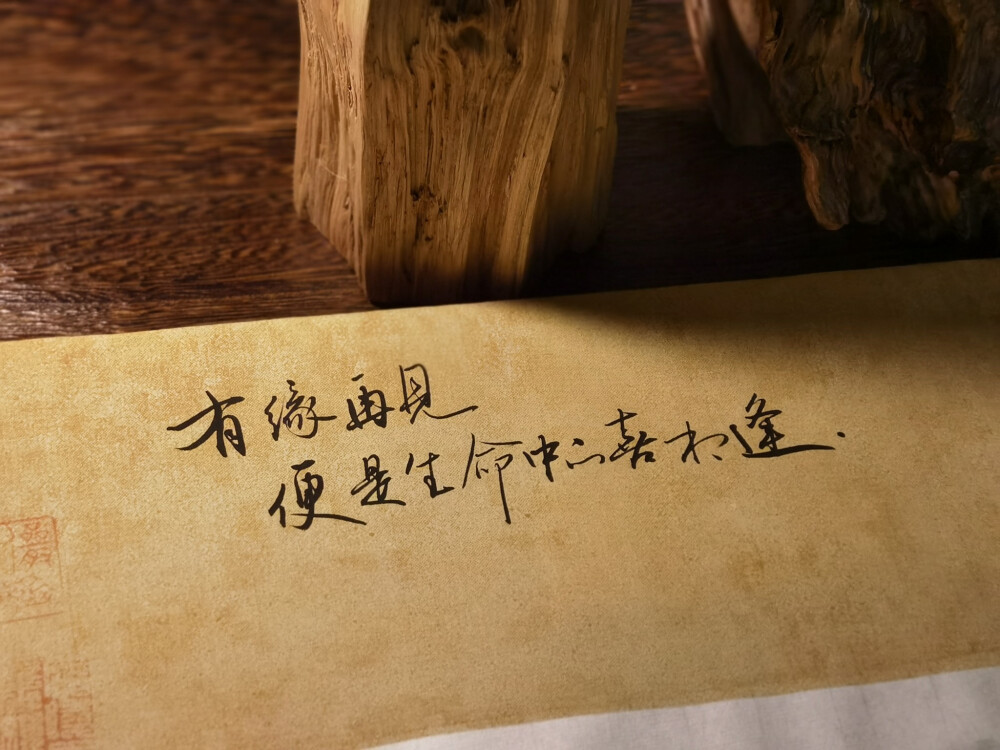 有缘再见
便是生命中的喜相逢.